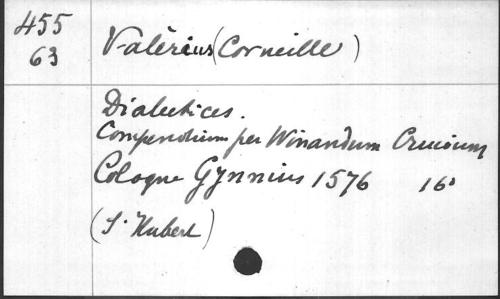 455
63
Valérius (Corneille)
Dialectices.
Compendium per Winandum Crucium
Cologne Gynnius 1576 16°
(St Hubert)